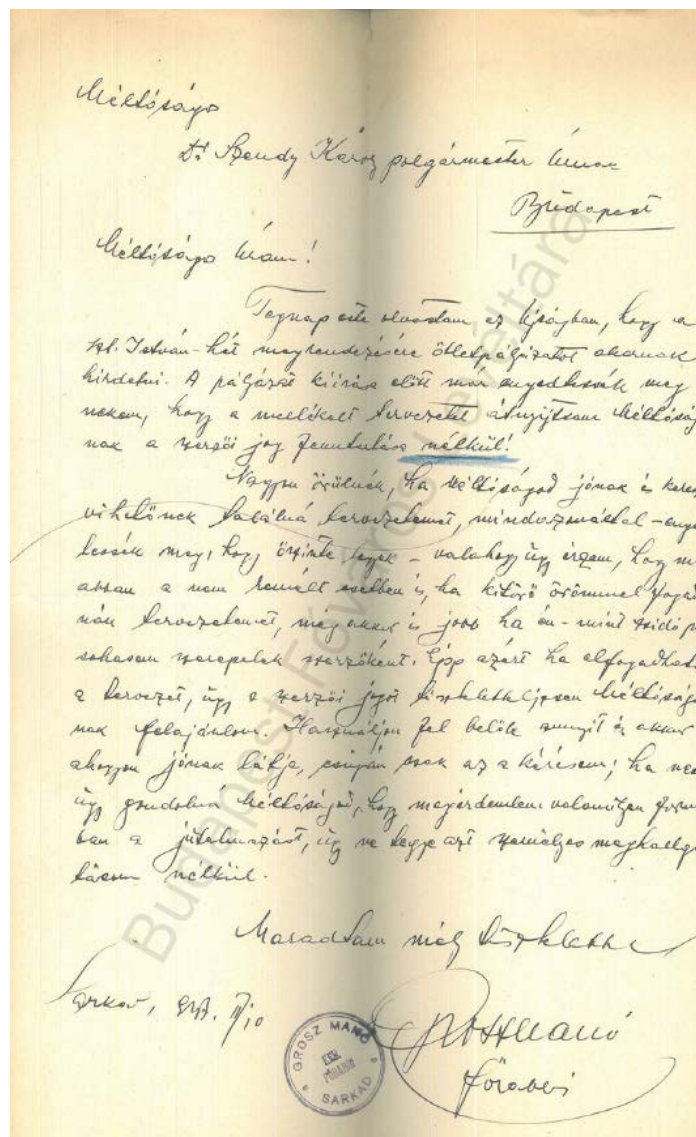 Méltóságos
Dr Szendy Károly polgármester Úrnak
Budapest
Méltóságos Uram!
Tegnap este olvastam az Ujságban, hogy a
Szt. István-hét megrendezésére ötletpályázatot akarnak
hirdetni. A pályázat kiírása előtt már engedtessék meg
nekem, hogy a mellékelt tervezetet átnyújtsam Méltóság
nak a szerzői jog fenntartása nélkül!
Nagyon örülnék, ha Méltóságod jónak és keresz
vihetőnek találná tervezetemet, mindazonáltal - enge
tessék meg, hogy őszinte legyek - valahogy úgy érzem, hogy m
abban a nem remélt esetben is, ha kitörő örömmel fogad
nák tervezetemet, még akkor is jobb ha én - mint zsidó p
sohasem szerepelek szerzőként. Épp azért ha elfogadhat
a tervezet, úgy a szerzői jogot tiszteletteljesen Méltóságo
nak felajánlom. Használjon fel belőle annyit és akkor
ahogyan jónak látja, csupán csak az a kérésem; ha ne
úgy gondolná Méltóságod, hogy megérdemlem valamilyen form
ban a jutalmazást, úg ne tegye azt személyes meghallga
tásom nélkül.
Maradtam mély tisztelettel
Sarkad,
Grosz Manó
főrabbi
GROSZ MANÓ
FŐRABBI
SARKAD
Budapest Főváros Levéltára